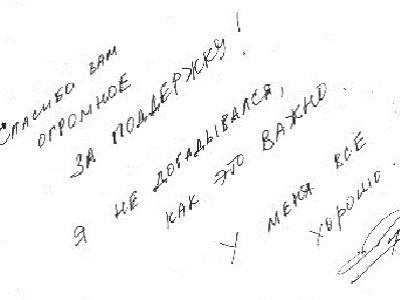 Спасибо вам
огромное
за поддержку!
Я не догадывался,
как это важно.
У меня все
хорошо.